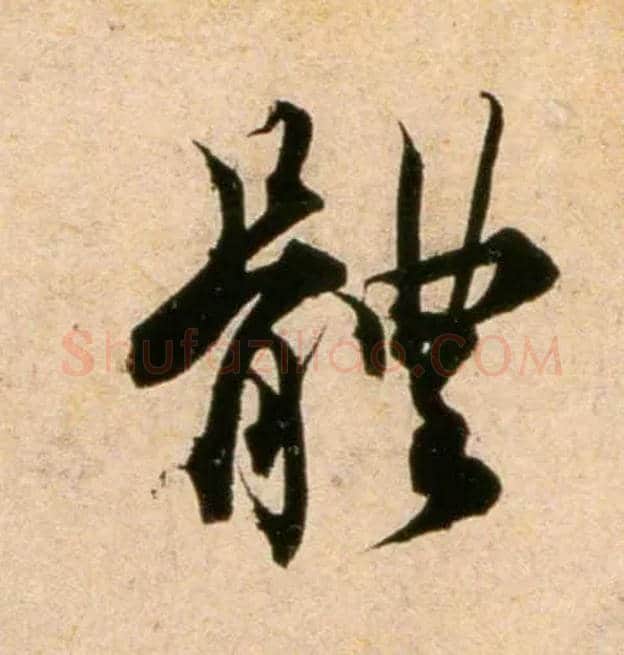 體
Shufaziliao.COM